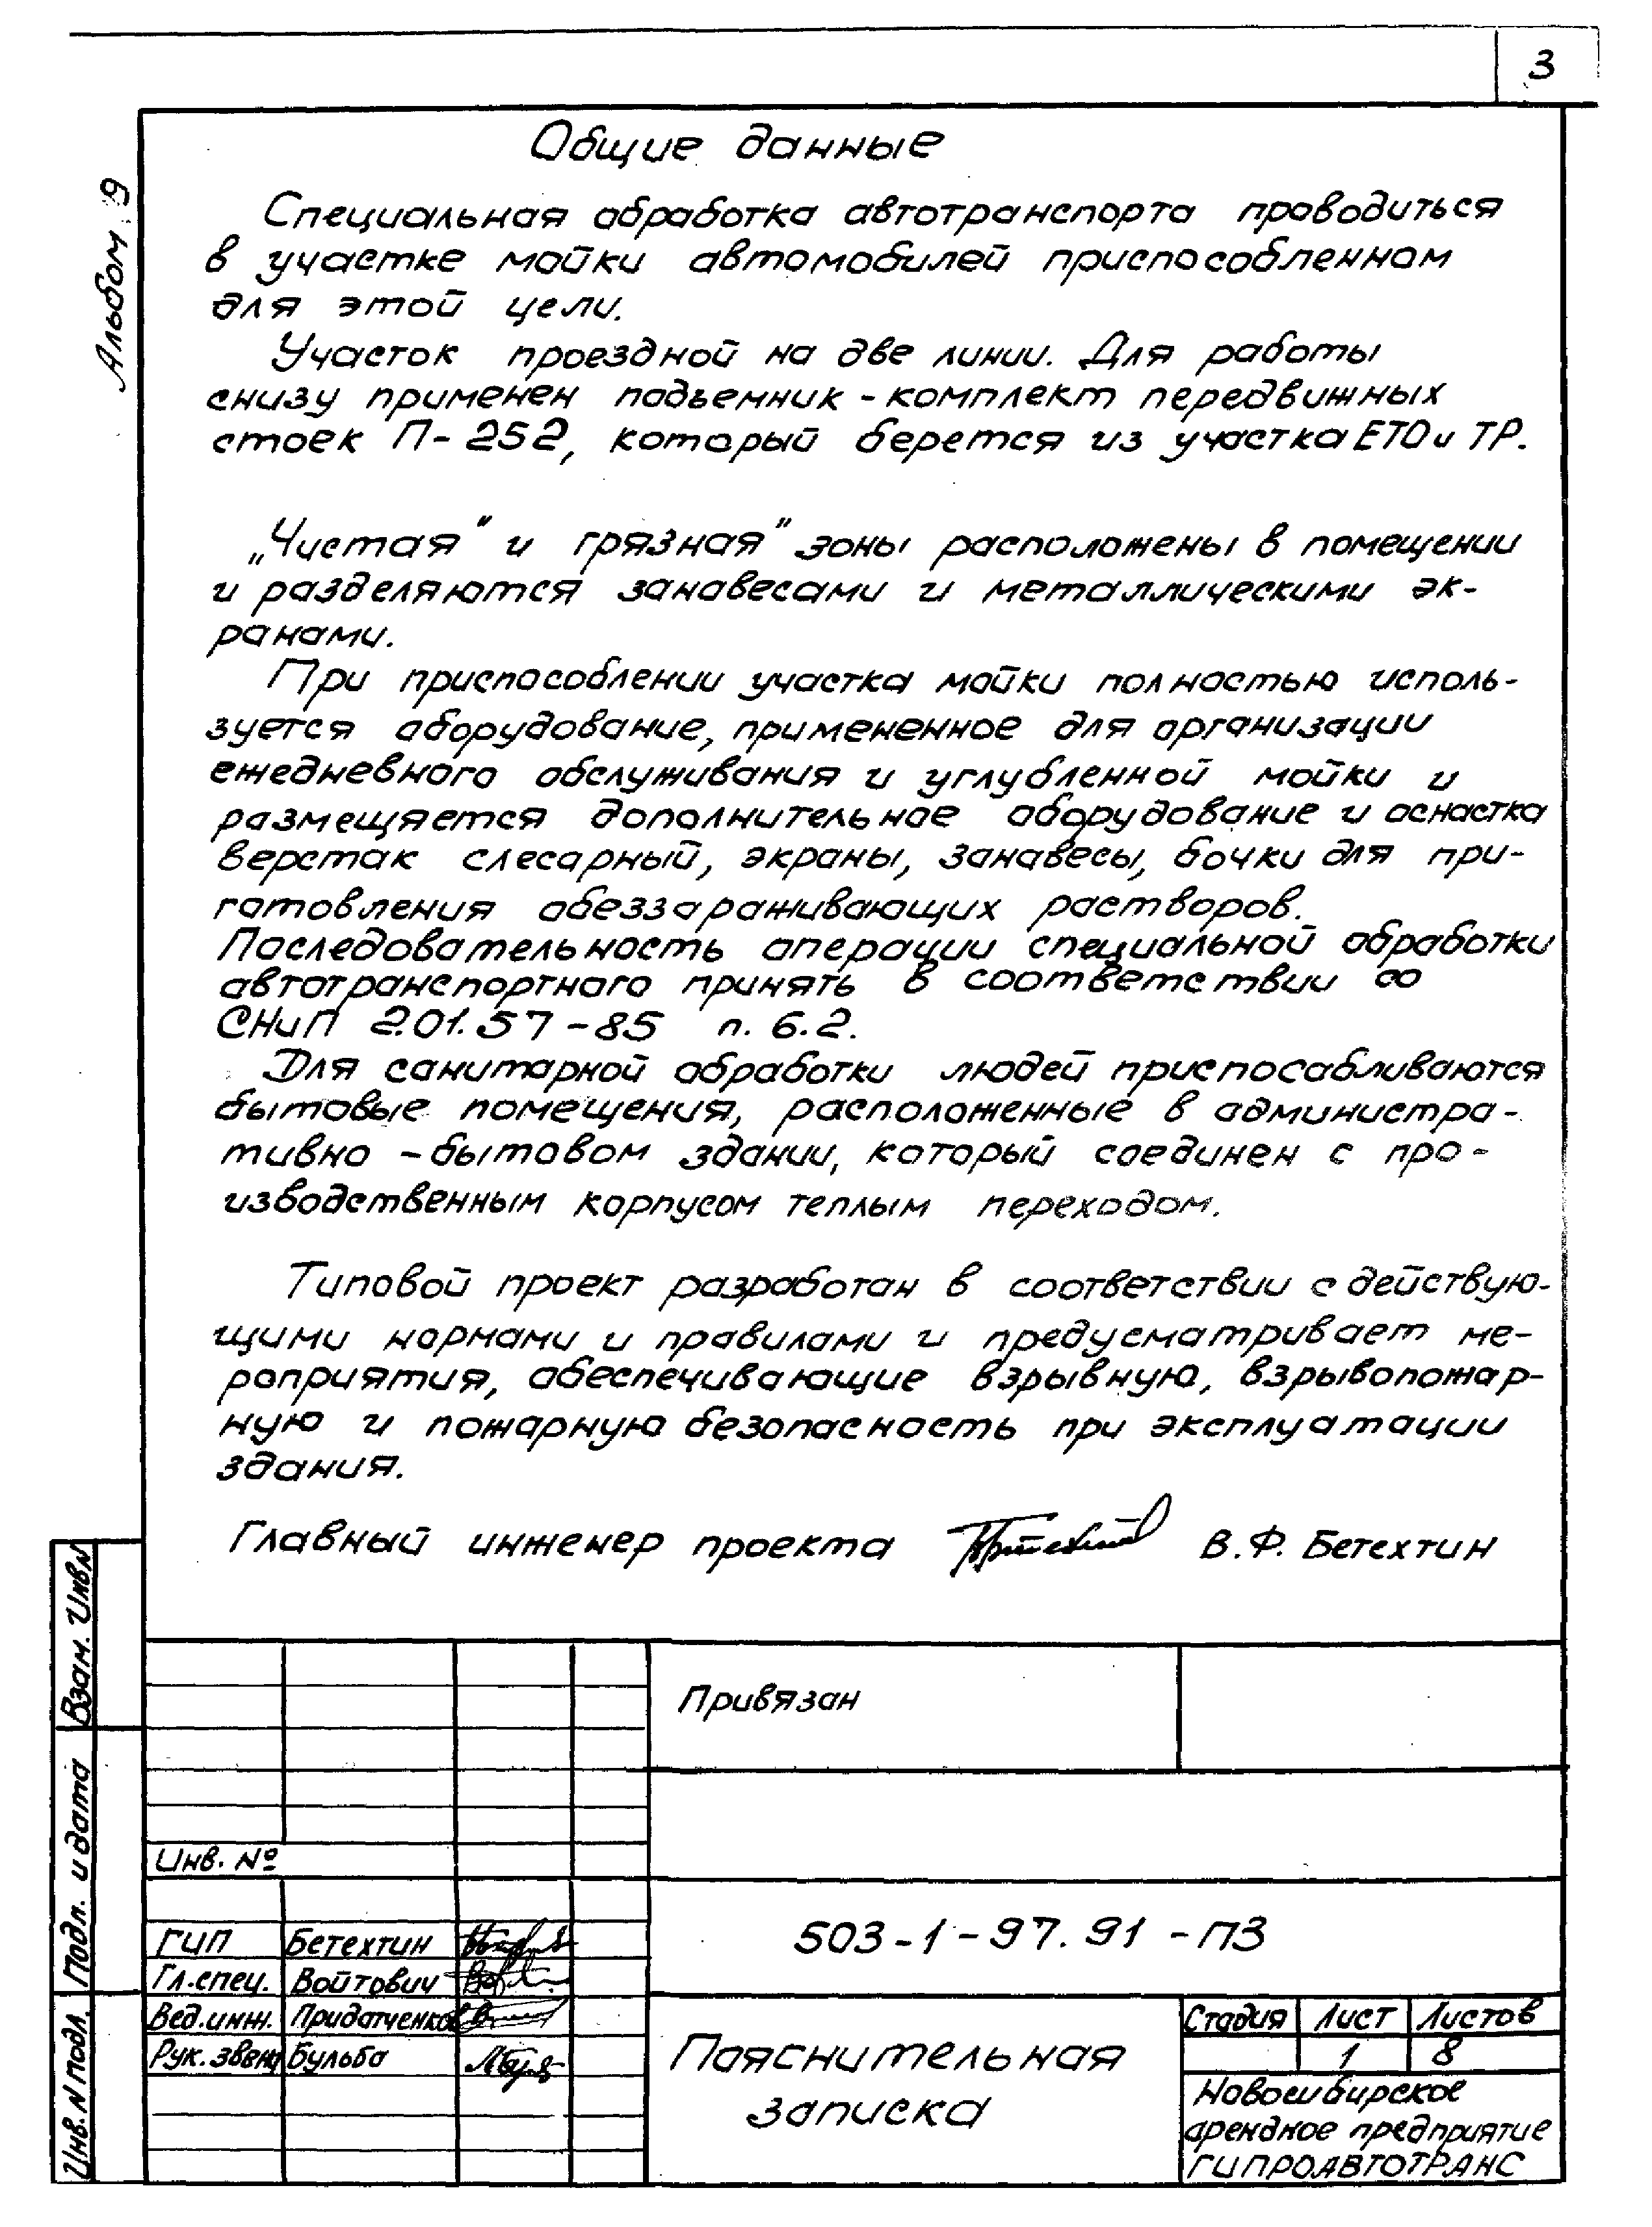 3
Альбом 9
Общие данные
Специальная обработка автотранспорта проводиться
в участке мойки автомобилей приспособленном
для этой цели.
Участок проездной на две линии. Для работы
снизу применен подьемник - комплект передвижных
стоек П-252, который берется из участка ЕТО и ТР.
„Чистая" и грязная" зоны расположены в помещении
и разделяются занавесами и металлическими эк-
ранами.
При приспособлении участка мойки полностью исполь-
зуется оборудование, примененное для организации
ежедневного обслуживания и углубленной мойки и
размещяется дополнительное оборудование и оснастка
верстак слесарный, экраны, занавесы, бочки для при-
готовления обеззараживающих растворов.
Последовательность операции специальной обработки
автотранспортного принять в соответствии со
СНиП 2.01.57-85 п. 6.2.
Для санитарной обработки людей приспосабливаются
бытовые помещения, расположенные в администра-
тивно - бытовом здании, который соединен с про-
изводственным корпусом теплым переходом.
Типовой проект разработан в соответствии с действую-
щими нормами и правилами и предусматривает ме-
роприятия, обеспечивающие взрывную, взрывопожар-
ную и пожарную безопасность при эксплуатации
здания.
Главный инженер проекта В.Ф. Бетехтин
Взам. Инв.N
Подп. и дата
Инв. N подл.
Привязан
Инв. №
ГИП Бетехтин
Гл.спец. Войтович
Вед.инж. Придатченков
Рук. звена Бульба
503-1-97.91-ПЗ
Пояснительная
записка
Стадия Лист Листов
1 8
Новосибирское
арендное предприятие
ГИПРОАВТОТРАНС